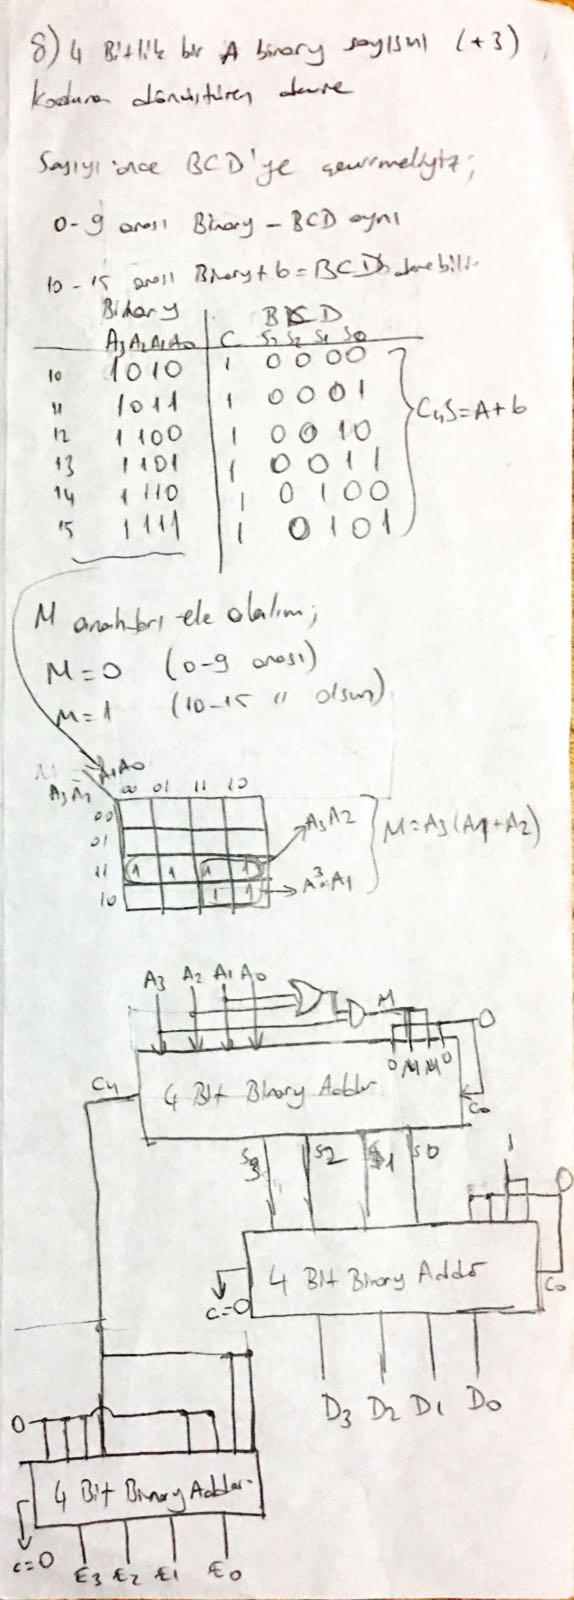 8) 4 Bitlik bir A binary sayısını (+3)
koduna dönüştüren devre
Sayıyı önce BCD'ye çevirmeliyiz;
0-9 arası Binary - BCD aynı
10-15 arası Binary + 6 = BCD
Binary BCD
A3A2A1A0 C S3 S2 S1 S0
10 1010 1 0000
11 1011 1 0001
12 1100 1 0010
13 1101 1 0011
14 1110 1 0100
15 1111 1 0101
C4S=A+6
M anahtarı ele alalım;
M=0 (0-9 arası)
M=1 (10-15 " olsun)
A1A0
A3A2 00 01 11 10
00
01
11 1 1 1 1
10 1 1
A3A2
A3·A1
M=A3(A1+A2)
A3 A2 A1 A0 M 0
0 M M 0
C4 4 Bit Binary Adder C0
S3 S2 S1 S0 1 0
4 Bit Binary Adder C0
C=0
D3 D2 D1 D0
0
4 Bit Binary Adder
C=0 E3 E2 E1 E0